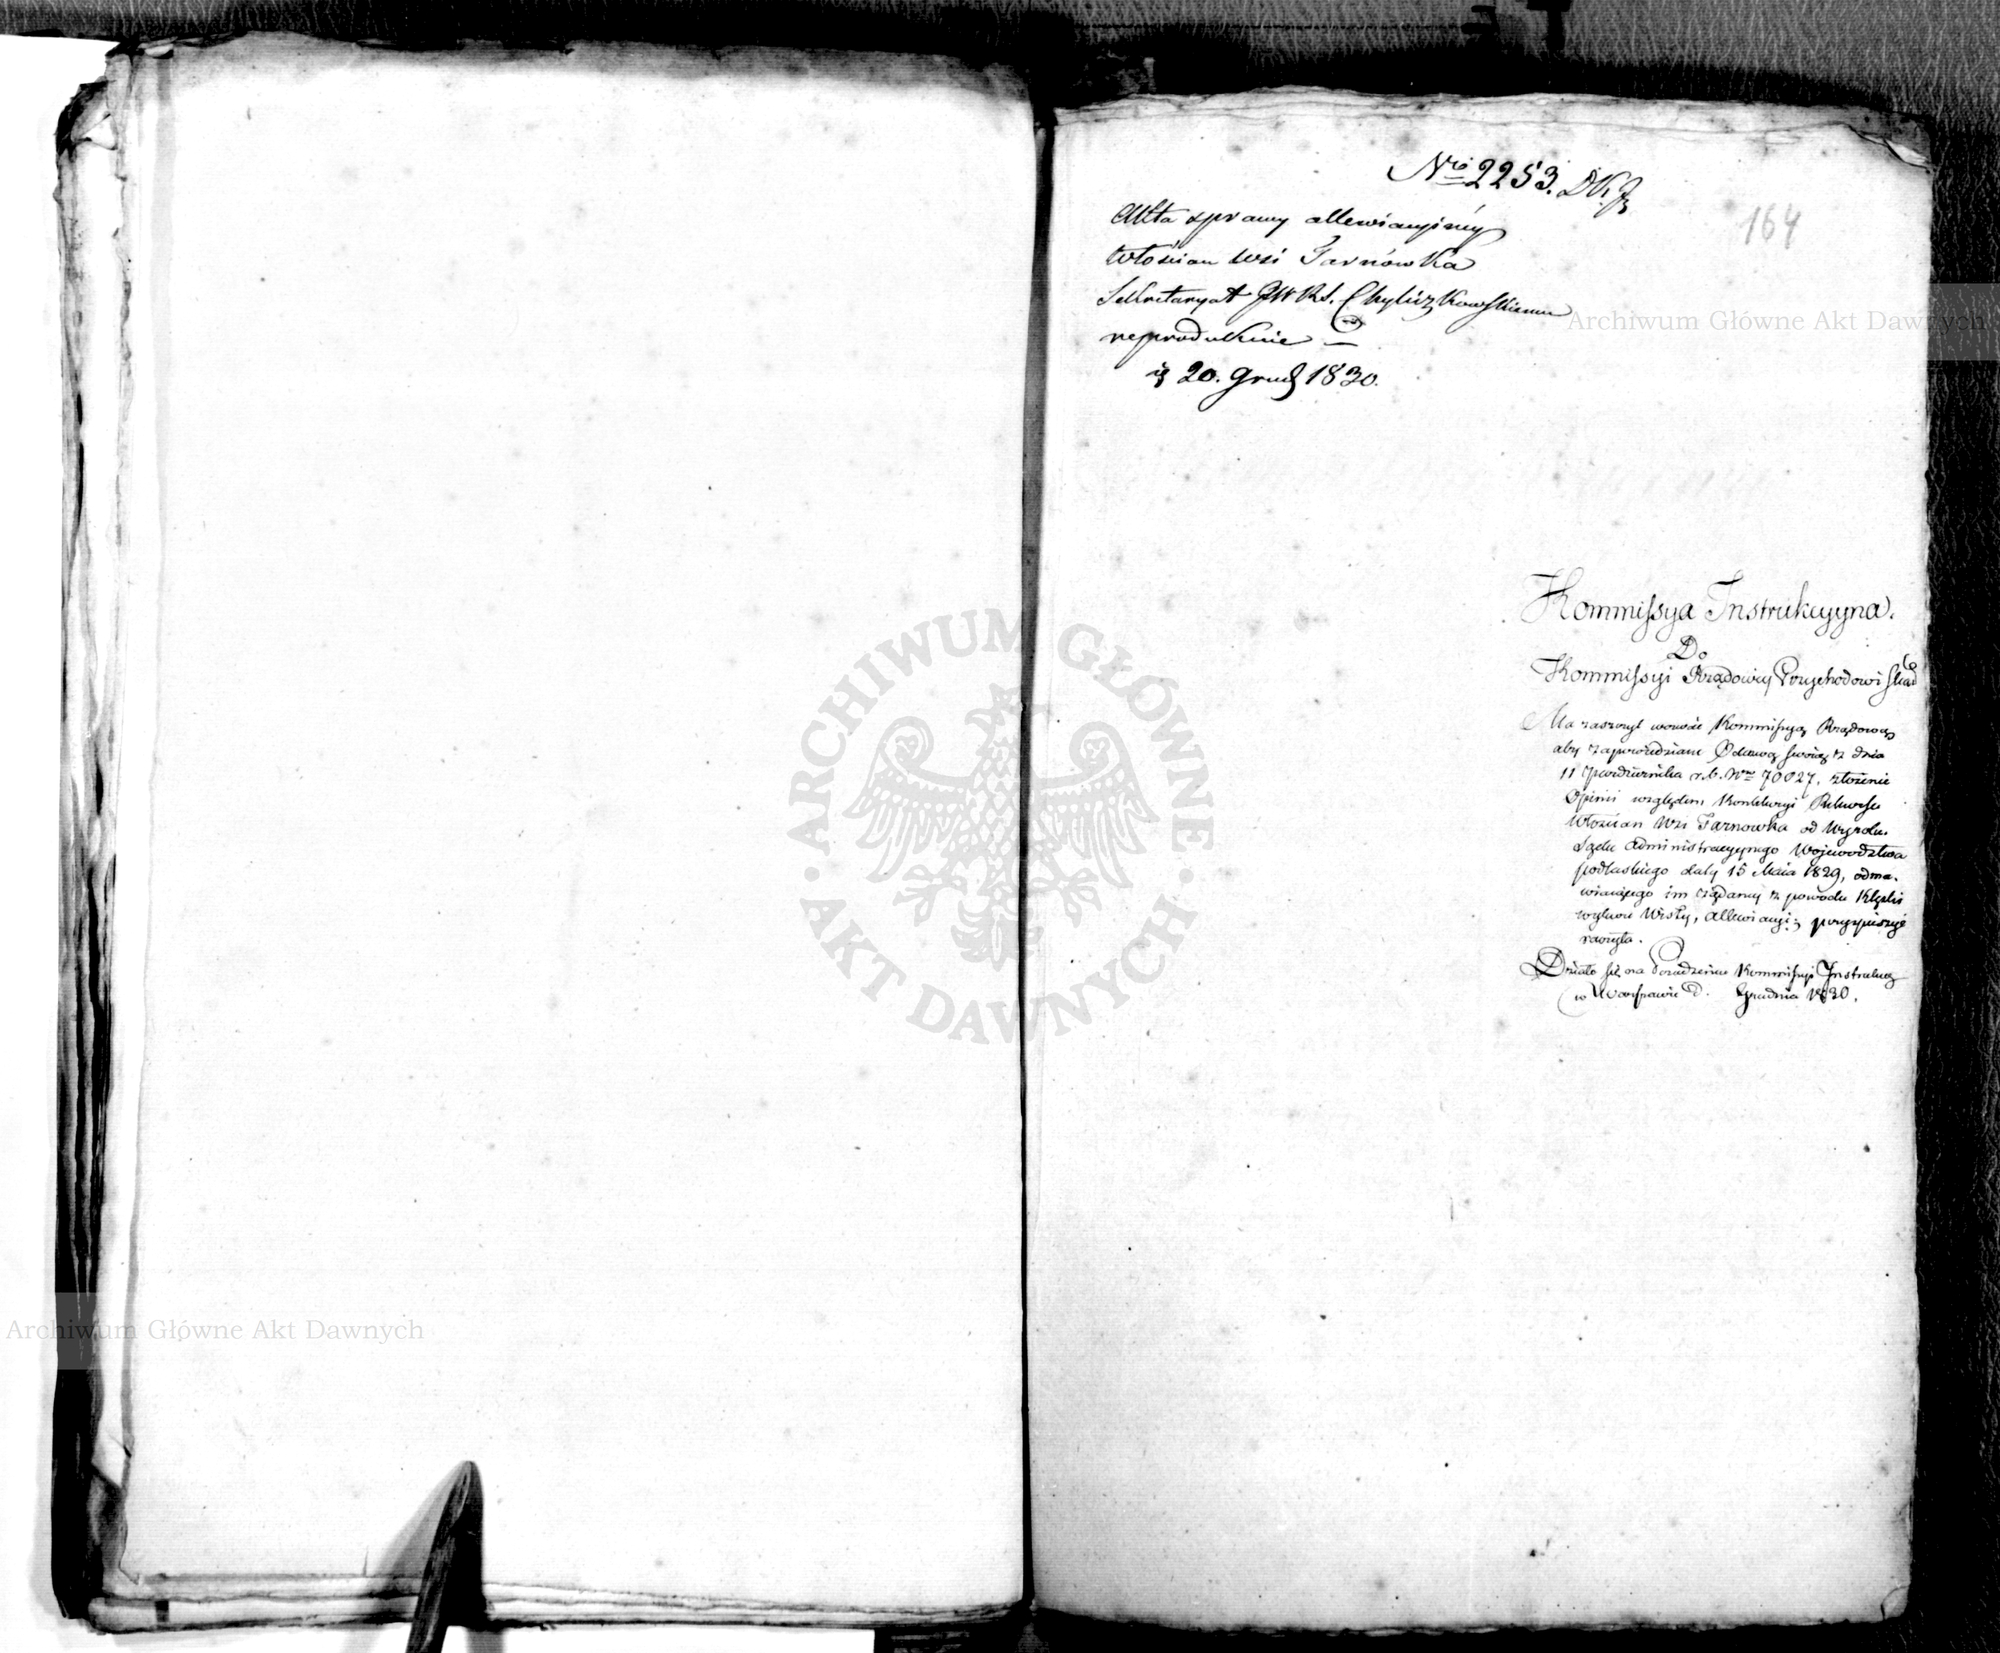 Nro 2253. DKJ
164
Akta sprawy allewiacyiney
Włościan wsi Tarnówka
Sekretaryat JW Rs. Chyliczkowskiemu
reprodukuie —
20. Grud 1830.
Kommissya Instrukcyyna.
Do
Kommissyi Rządowey Przychodow i Skarbu
Ma zaszczyt wezwać Kommissyą Rządową
aby zapowiedziane Odezwą swoią z dnia
11 Października r. b. Nro 70027, złożenie
Opinii względem Rekursu
Włościan Wsi Tarnowka od Wyroku
Sądu Administracyynego Woiewodztwa
podlaskiego daty 15 Maia 1829, odma-
wiaiącego im żądaney z powodu klęski
wylewu Wisły, allewiacyi; przyspieszyć
raczyła.
Działo się na Posiedzeniu Kommissyi Instrukcy
w Warszawie d. Grudnia 1830.
Archiwum Główne Akt Dawnych
ARCHIWUM GŁÓWNE
AKT DAWNYCH
Archiwum Główne Akt Dawnych